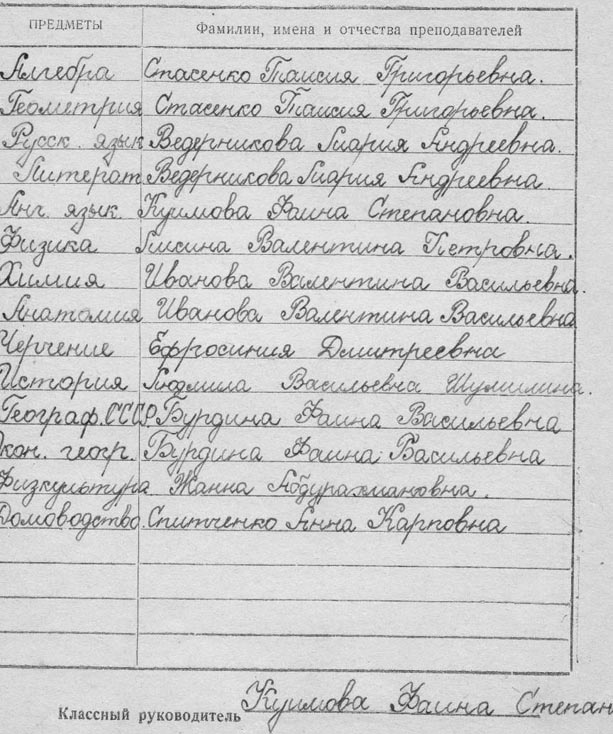 ПРЕДМЕТЫ Фамилии, имена и отчества преподавателей
Алгебра Стасенко Таисия Григорьевна.
Геометрия Стасенко Таисия Григорьевна.
Русск. язык Ведерникова Мария Андреевна.
Литерат. Ведерникова Мария Андреевна.
Анг. язык. Куимова Фаина Степановна.
Физика Валентина Петровна.
Химия Иванова Валентина Васильевна.
Анатомия Иванова Валентина Васильевна
Черчение Ефросиния Дмитреевна
История Людмила Васильевна Шумилина.
Географ. СССР Бурдина Фаина Васильевна
кон. геогр. Бурдина Фаина Васильевна
Физкультура Жанна Абдурахмановна.
Домоводство. Спитченко Анна Карповна
Классный руководитель Куимова Фаина Степан